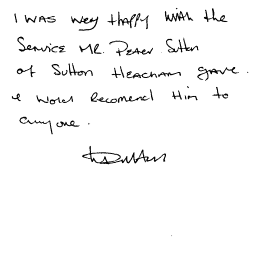 I was very Happy with the
Service Mr. Peter Sutton
of Sutton Heacham gave.
I would Recomend Him to
anyone.